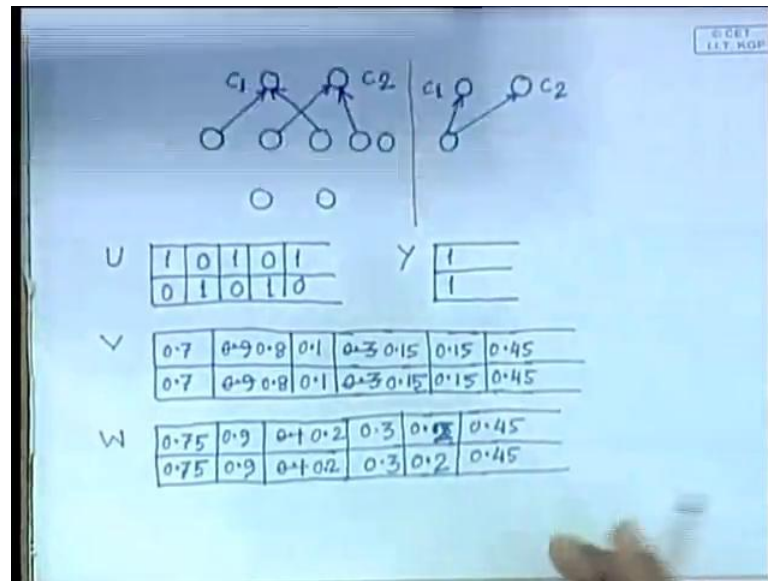 © CET
I.I.T. KGP
C1 C2 C1 C2
U 1 0 1 0 1 Y 1
0 1 0 1 0 1
V 0.7 0.9 0.8 0.1 0.3 0.15 0.15 0.45
0.7 0.9 0.8 0.1 0.3 0.15 0.15 0.45
W 0.75 0.9 0.1 0.2 0.3 0.45
0.75 0.9 0.1 0.2 0.3 0.2 0.45